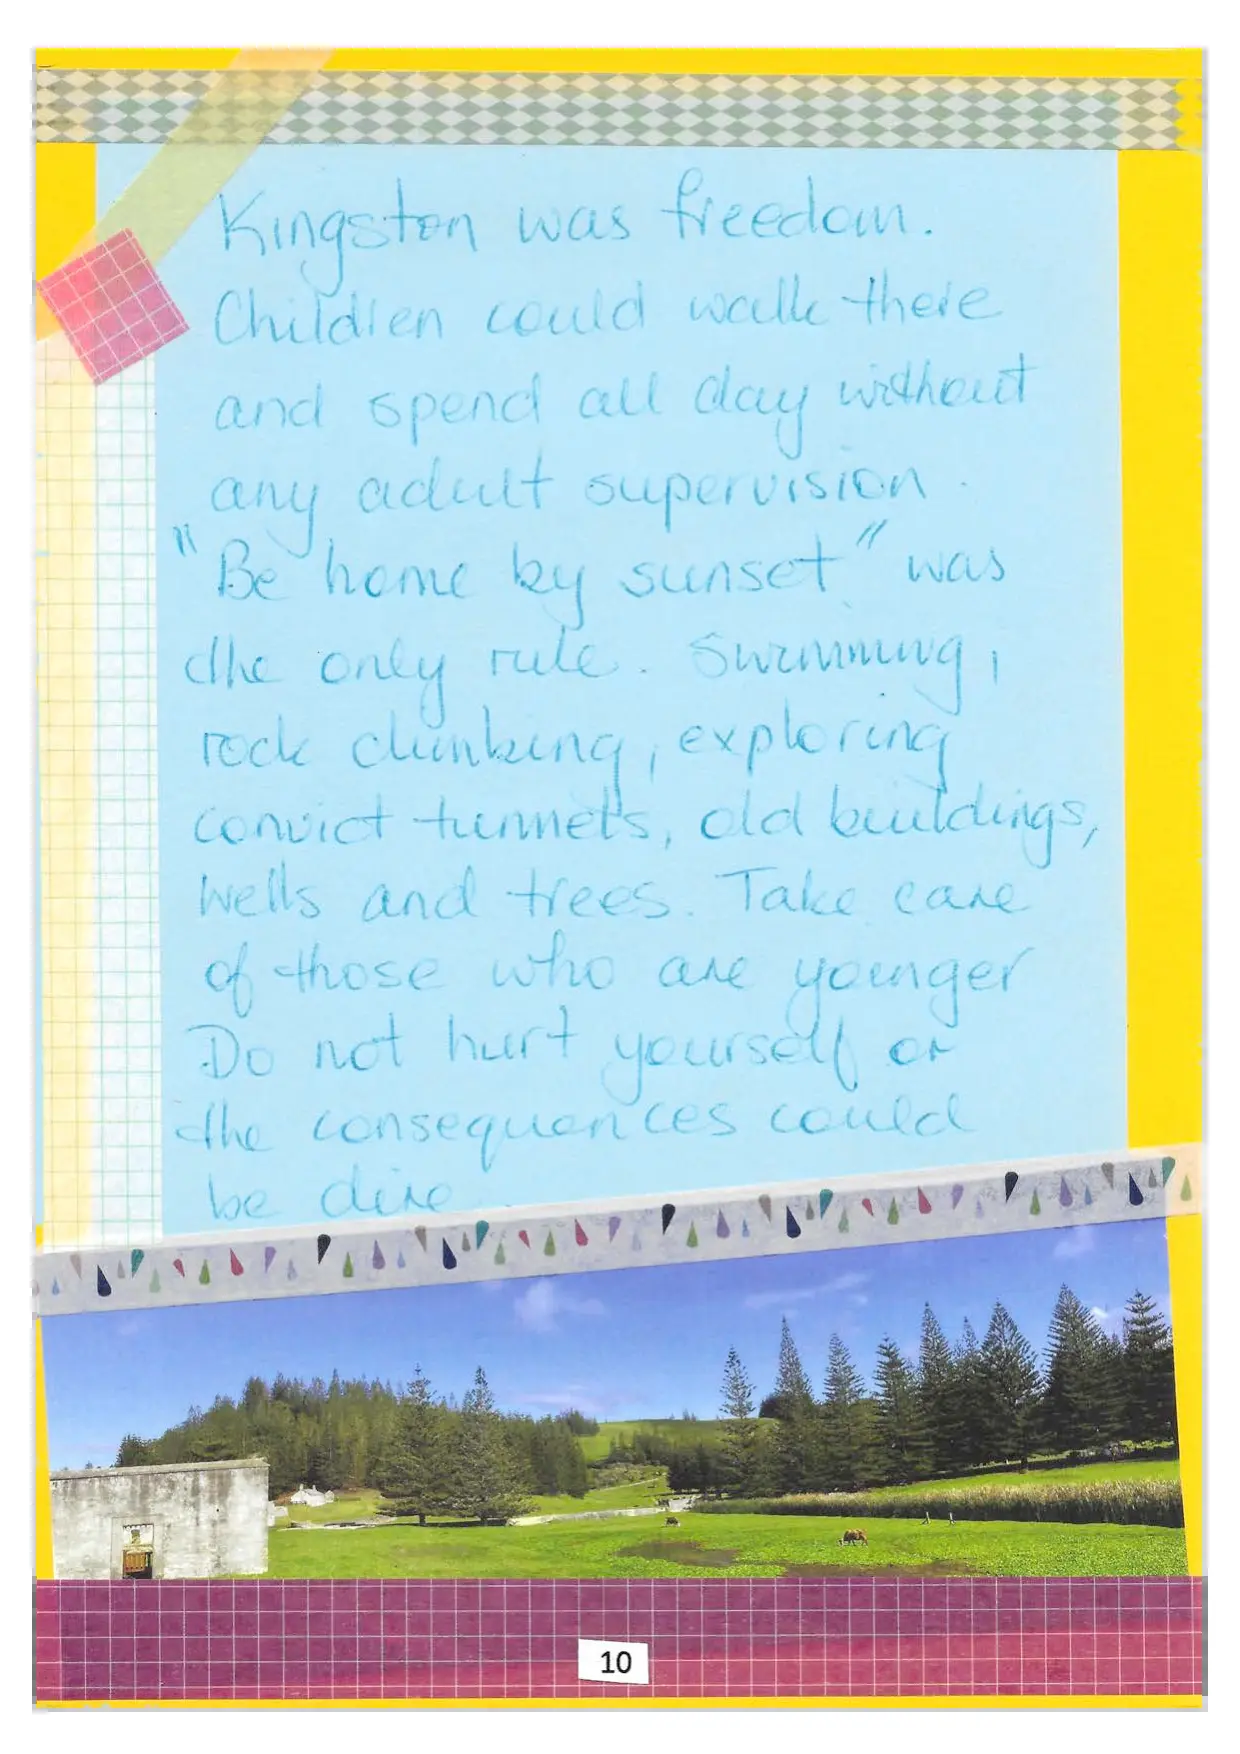 Kingston was freedom.
Children could walk there
and spend all day without
any adult supervision.
"Be home by sunset" was
the only rule. Swimming,
rock climbing, exploring
convict tunnels, old buildings,
wells and trees. Take care
of those who are younger
Do not hurt yourself or
the consequences could
be dire
10